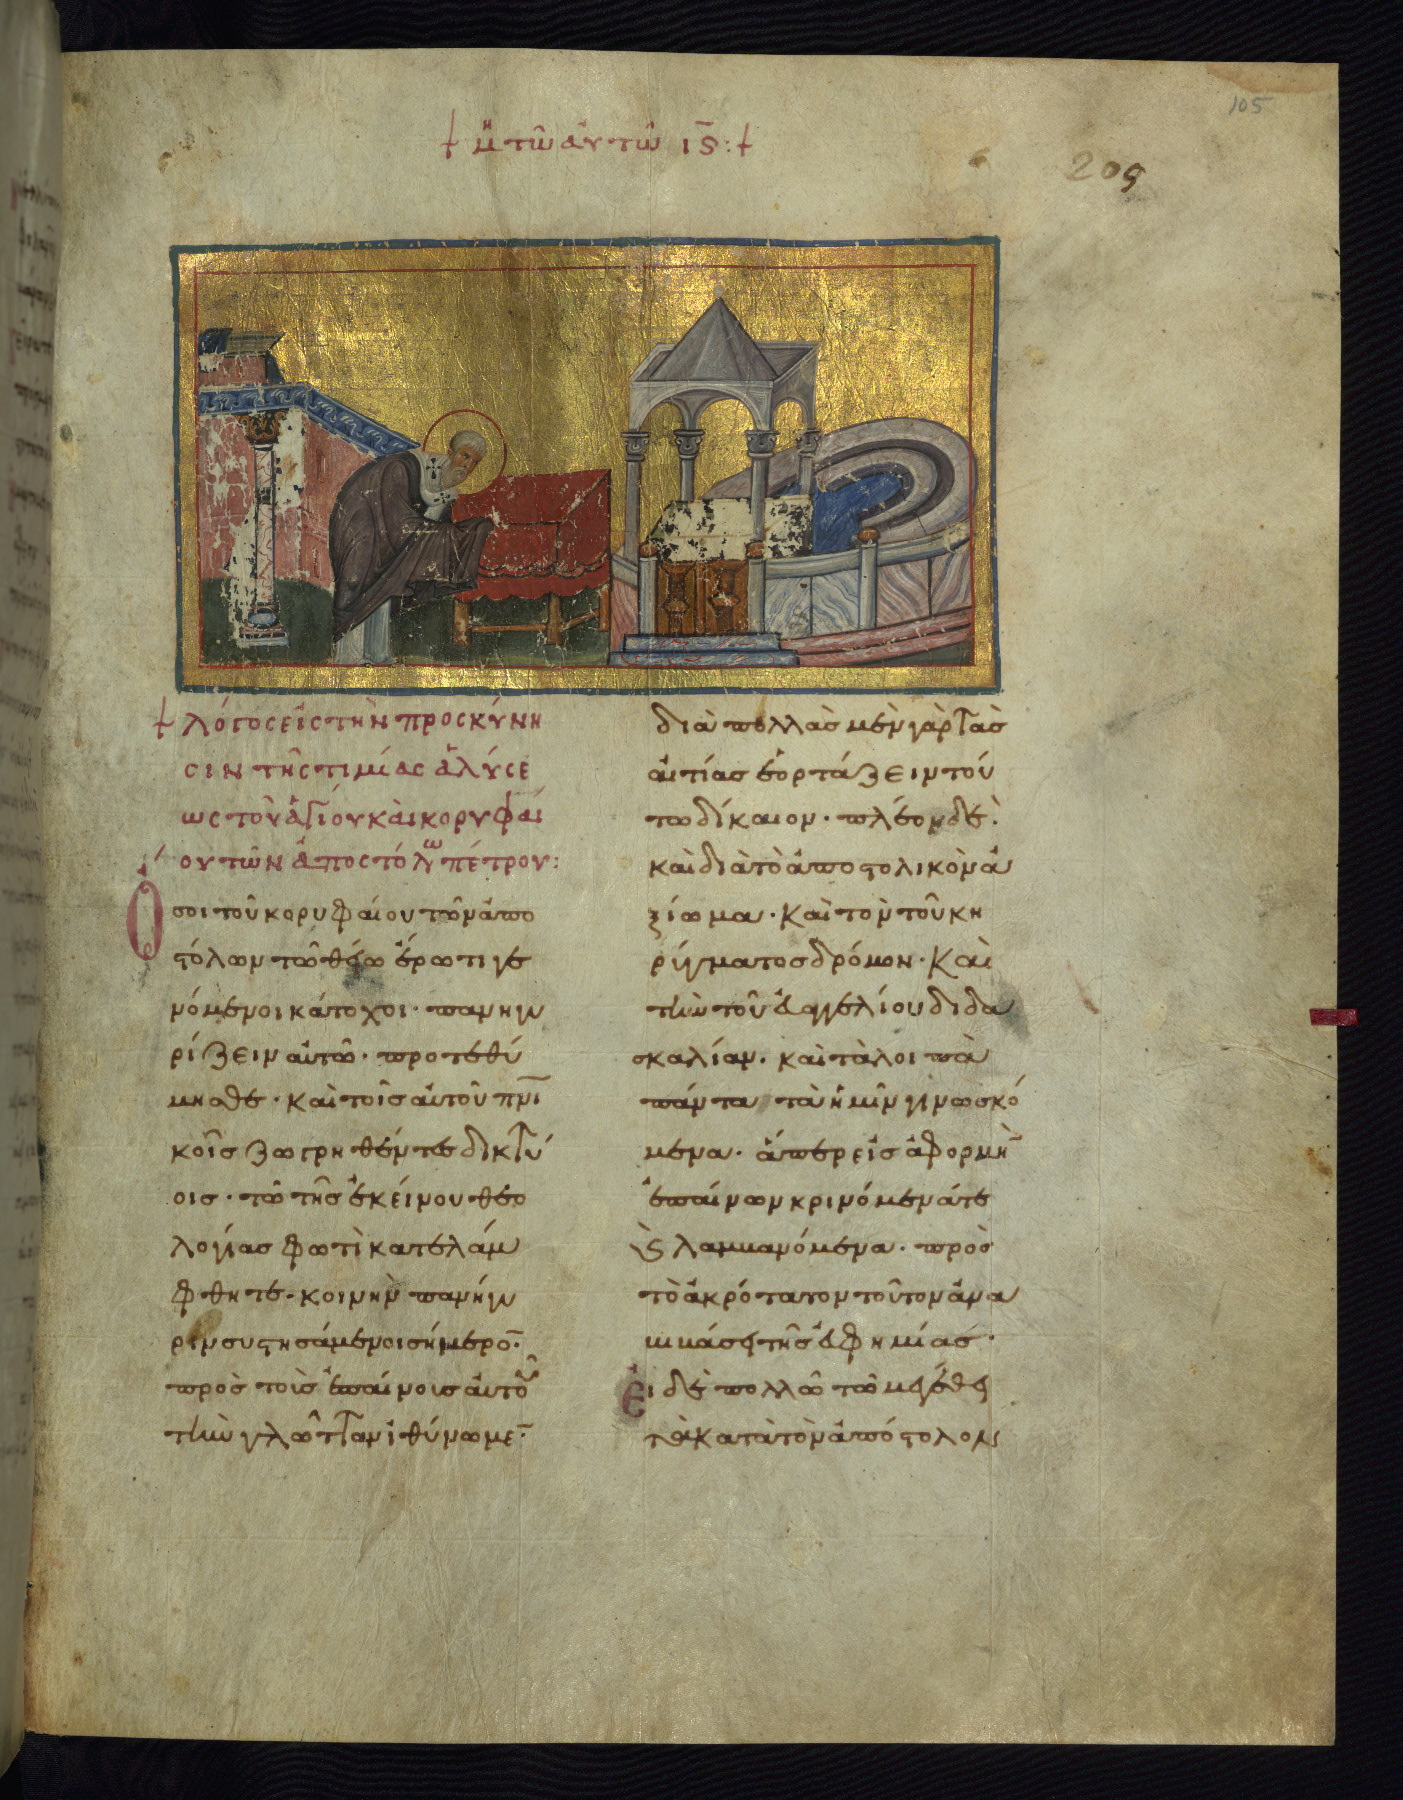 105
209
† μη τῶ αὐτῶ ις :†
† λόγος εἰς τὴν προσκύνη
σιν τῆς τιμίας ἁλύσε
ως τοῦ ἁγίου καὶ κορυφαί
ου τῶν ἀποστόλω πέτρου :
Ὅσοι τοῦ κορυφαίου τῶν ἀπο
στόλων τῶ θείω ἔρωτι γε
νόμενοι κάτοχοι · πανηγυ
ρίζειν αὐτῶ · προτεθύ
μησθε · καὶ τοῖς αὐτοῦ πνι
κοῖς ζωγρηθέντες δικτύ
οις · τῶ τῆς ἐκείνου θεο
λογίας φωτὶ κατελάμ
φθητε · κοινὴν πανήγυ
ριν συστησάμενοι σήμερο̄ ·
πρὸς τοῖς ἐπαίνοις αὐτοῦ
τὴν γλῶτταν ἰθύνωμε̄ ·
διὰ πολλὰς μὲν γὰρ τὰς
αἰτίας ἑορτάζειν τού
τω δίκαιον · πλέον δὲ ·
καὶ διὰ τὸ ἀποστολικὸν ἀ
ξίωμα · καὶ τὸν τοῦ κη
ρύγματος δρόμον · καὶ
τὴν τοῦ εὐαγγελίου διδα
σκαλίαν · καὶ τὰ λοιπὰ
πάντα τὰ ἡμῖν γινωσκό
μενα · ἅπερ εἰς ἀφορμὴ̄
ἐπαίνων κρινόμενά τε
καὶ λαμβανόμενα · πρὸς
τὸ ἀκρότατον τοῦτον ἀνα
βιβάσει τῆς εὐφημίας ·
Εἰ δὲ πολλῶ τῶ μεγέθει
τὰ κατὰ τὸν ἀπόστολον